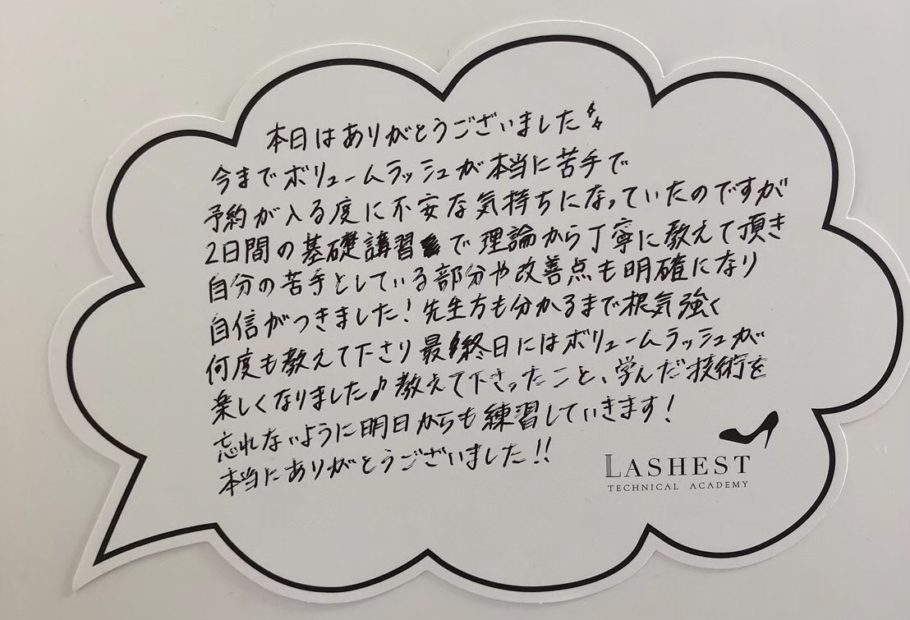 本日はありがとうございました
今までボリュームラッシュが本当に苦手で
予約が入る度に不安な気持ちになっていたのですが
2日間の基礎講習で理論から丁寧に教えて頂き
自分の苦手としている部分や改善点も明確になり
自信がつきました！先生方も分かるまで根気強く
何度も教えて下さり最終日にはボリュームラッシュが
楽しくなりました♪教えて下さったこと、学んだ技術を
忘れないように明日からも練習していきます！
本当にありがとうございました!!
LASHEST
TECHNICAL ACADEMY